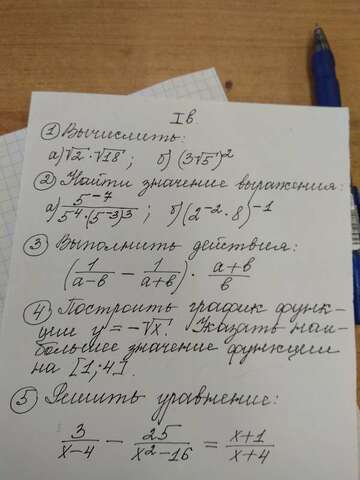 I в.
① Вычислить:
а) √2 · √18 ; б) (3√5)²
② Найти значение выражения:
а) 5⁻⁷ / (5⁴ · (5⁻³)³) ; б) (2⁻² · 8)⁻¹
③ Выполнить действия:
(1/(а−в) − 1/(а+в)) · (а+в)/в
④ Построить график функ-
ции y = −√x. Указать наи-
большее значение функции
на [1; 4].
⑤ Решить уравнение:
3/(x−4) − 25/(x²−16) = (x+1)/(x+4)